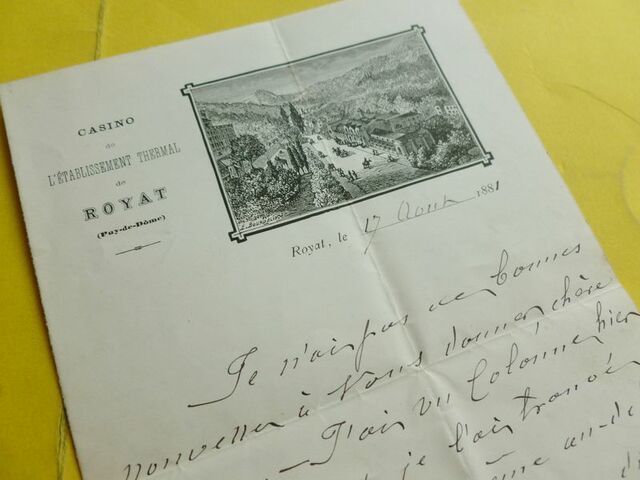 CASINO
de
L'ÉTABLISSEMENT THERMAL
de
ROYAT
(Puy-de-Dôme)
Royat, le 17 Août 1881
Je n'ai pas de bonnes
nouvelles à vous donner chère
J'ai vu Colonne hier
je l'ai trouvé
au-de